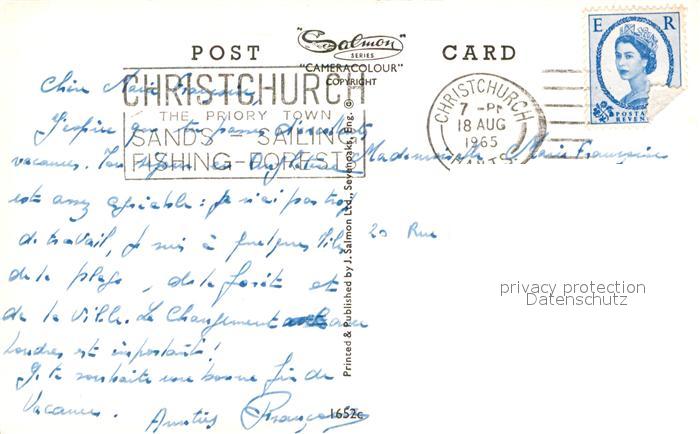 POST "Salmon" CARD
SERIES
"CAMERACOLOUR"
COPYRIGHT
E R
POSTAGE
REVEN
CHRISTCHURCH
THE PRIORY TOWN
SANDS - SAILING
FISHING - FOREST
CHRISTCHURCH
7 - PM
18 AUG
1965
HANTS
Chère Marie Françoise,
J'espère que tu passes d'excellentes
vacances. Ton séjour en Angleterre
est assez agréable : je n'ai pas trop
de travail, je suis à quelques
de la plage, de la forêt et
de la ville. Le Changement avec
Londres est important!
Je te souhaite une bonne fin de
Vacances. Amitiés Françoise
Mademoiselle Marie Françoise
20 Rue
Printed & Published by J. Salmon Ltd., Sevenoaks, Eng. ©
1652c
privacy protection
Datenschutz